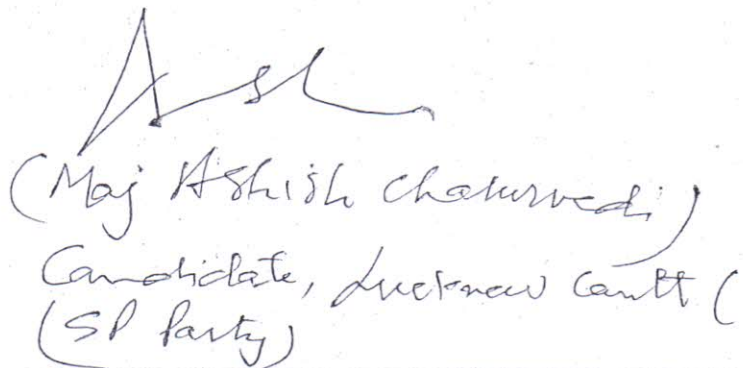 Ash
(Maj Ashish Chaturvedi)
Candidate, Lucknow Cantt (
(SP Party)